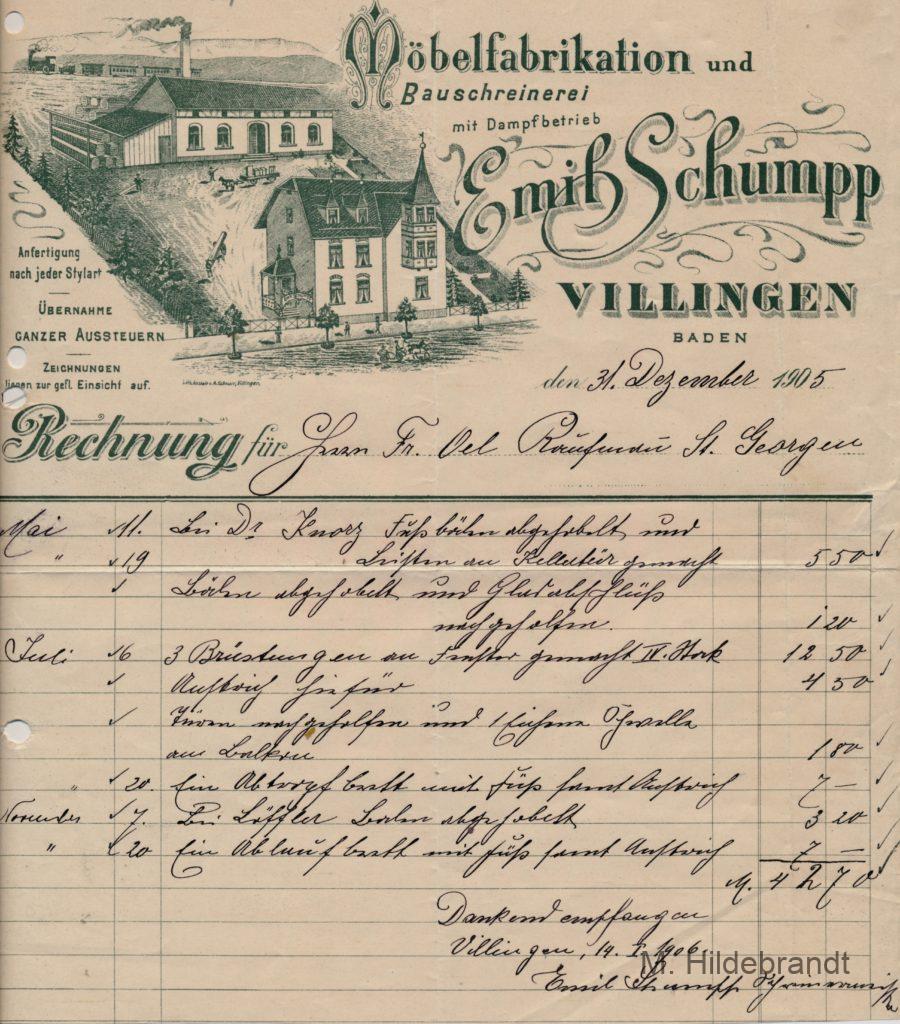 Möbelfabrikation und
Bauschreinerei
mit Dampfbetrieb
Emil Schumpp
VILLINGEN
BADEN
Anfertigung
nach jeder Stylart
ÜBERNAHME
GANZER AUSSTEUERN
ZEICHNUNGEN
liegen zur gefl. Einsicht auf.
den 31. Dezember 1905
Rechnung für Herrn Fr. Oel Kaufmann St. Georgen
Mai 11. bei Dr Knorz Fußböden abgehobelt und
" 19 Leisten an Kellertür gemacht 5 50
Böden abgehobelt und Glasabschlüß
nachgeholfen. 1 20
Juli 16 3 Brüstungen an Fenster gemacht IV. Stock 12 50
Anstrich hiefür 4 50
Türen nachgeholfen und 1 Eichene Schwelle
am Balkon 1 80
" 20. Ein Abtropfbrett mit Füß samt Anstrich 7 —
November 7. Bei Löffler Boden abgehobelt 3 20
" 20 Ein Ablaufbrett mit Füß samt Anstrich 7 —
M. 42 70
Dankend empfangen
Villingen, 14. I. 1906.
Emil Schumpp Schreinermeister
M. Hildebrandt